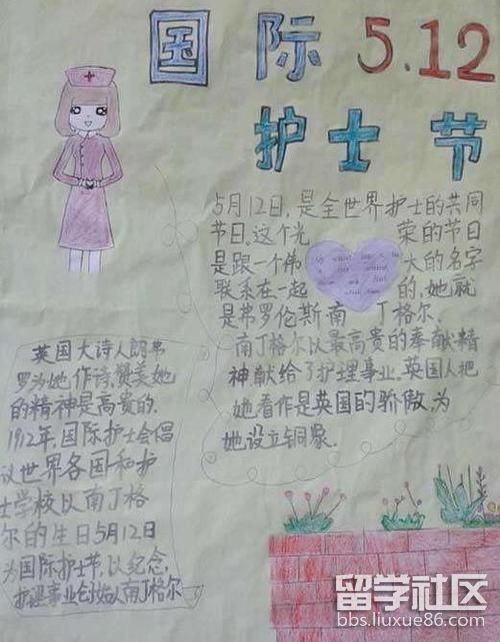 国际 5.12
护士节
5月12日，是全世界护士的共同
节日。这个光荣的节日
是跟一个伟大的名字
联系在一起的，她就
是弗罗伦斯南丁格尔、
南丁格尔以最高贵的奉献精
神献给了护理事业。英国人把
她看作是英国的骄傲，为
她设立铜象．
英国大诗人朗弗
罗为她作诗，赞美她
的精神是高贵的．
1912年，国际护士会倡
议世界各国和护
士学校以南丁格
尔的生日5月12日
为国际护士节，以纪念，
护理事业创始人南丁格尔
留学社区
bbs.liuxue86.com